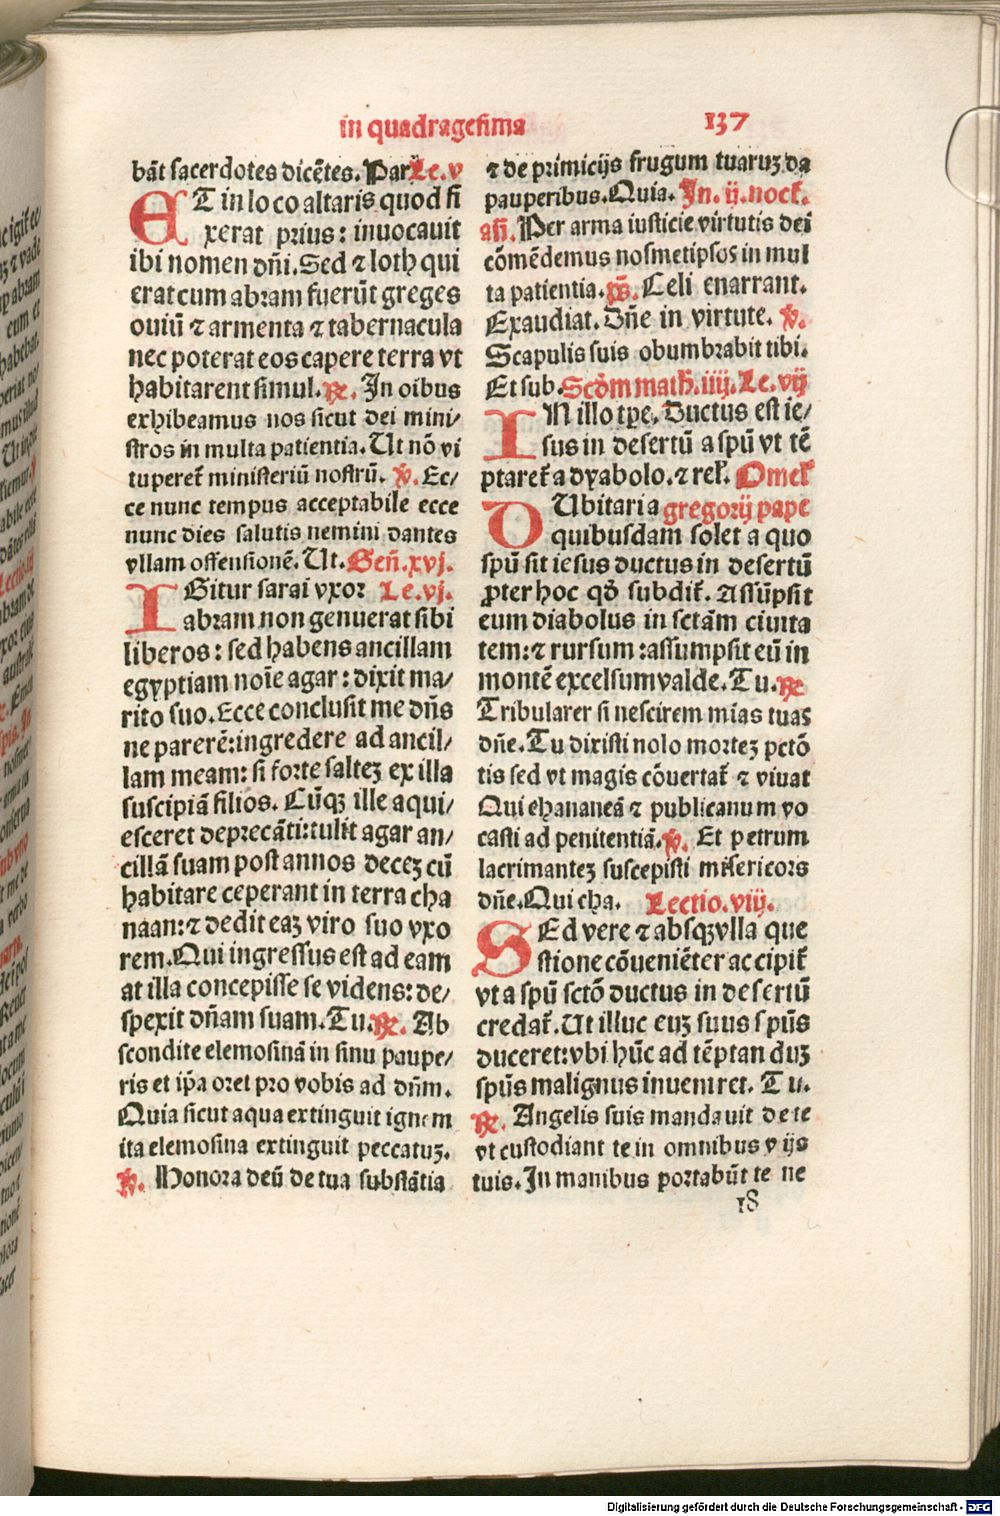 in quadragesima 137
bāt sacerdotes dicētes. Par Le.v
ET in loco altaris quod fi
xerat prius: inuocauit
ibi nomen dñi. Sed ⁊ loth qui
erat cum abram fuerūt greges
ouiū ⁊ armenta ⁊ tabernacula
nec poterat eos capere terra vt
habitarent simul. ℞. In oībus
exhibeamus nos sicut dei mini/
stros in multa patientia. Ut nō vi
tuperet̄ ministeriū nostrū. ℣. Ec/
ce nunc tempus acceptabile ecce
nunc dies salutis nemini dantes
vllam offensionē. Ut. Geñ.xvj.
IGitur sarai vxor Le.vj.
abram non genuerat sibi
liberos: sed habens ancillam
egyptiam noīe agar: dixit ma/
rito suo. Ecce conclusit me dñs
ne parerē: ingredere ad ancil/
lam meam: si forte salteꝫ ex illa
suscipiā filios. Cūqꝫ ille aqui/
esceret deprecāti: tulit agar an/
cillā suam post annos deceꝫ cū
habitare ceperant in terra cha
naan: ⁊ dedit eaꝫ viro suo vxo
rem. Qui ingressus est ad eam
at illa concepisse se videns: de/
spexit dñam suam. Tu. ℞. Ab
scondite elemosinā in sinu paupe/
ris et ip̄a oret pro vobis ad dñm.
Quia sicut aqua extinguit ignem
ita elemosina extinguit peccatuꝫ.
℣. Honora deū de tua substātia
⁊ de primicijs frugum tuaruꝫ da
pauperibus. Quia. In. ij. noct̄.
añ. Per arma iusticie virtutis dei
cōmēdemus nosmetipsos in mul
ta patientia. p̄s. Celi enarrant.
Exaudiat. Dñe in virtute. ℣.
Scapulis suis obumbrabit tibi.
Et sub. Scd̄m math̄. iiij. Le. vij
IN illo tp̄e. Ductus est ie/
sus in desertū a spū vt tē
ptaret̄ a dyabolo. ⁊ rel̄. Omel̄
DUbitari a gregorij pape
quibusdam solet a quo
spū sit iesus ductus in desertū
ꝓpter hoc qd̄ subdit̄. Assūpsit
eum diabolus in sctām ciuita
tem: ⁊ rursum: assumpsit eū in
montē excelsum valde. Tu. ℞
Tribularer si nescirem mīas tuas
dñe. Tu dixisti nolo morteꝫ pctō
tis sed vt magis cōuertat̄ ⁊ viuat
Qui chananeā ⁊ publicanum vo
casti ad penitentiā. ℣. Et petrum
lacrimanteꝫ suscepisti misericors
dñe. Qui cha. Lectio. viij.
SEd vere ⁊ absqꝫ vlla que
stione cōueniēter accipit̄
vt a spū sctō ductus in desertū
credat̄. Ut illuc euꝫ suus spūs
duceret: vbi hūc ad tēptanduꝫ
spūs malignus inueniret. Tu.
℞. Angelis suis mandauit de te
vt custodiant te in omnibus vijs
tuis. In manibus portabūt te ne
18
Digitalisierung gefördert durch die Deutsche Forschungsgemeinschaft - DFG